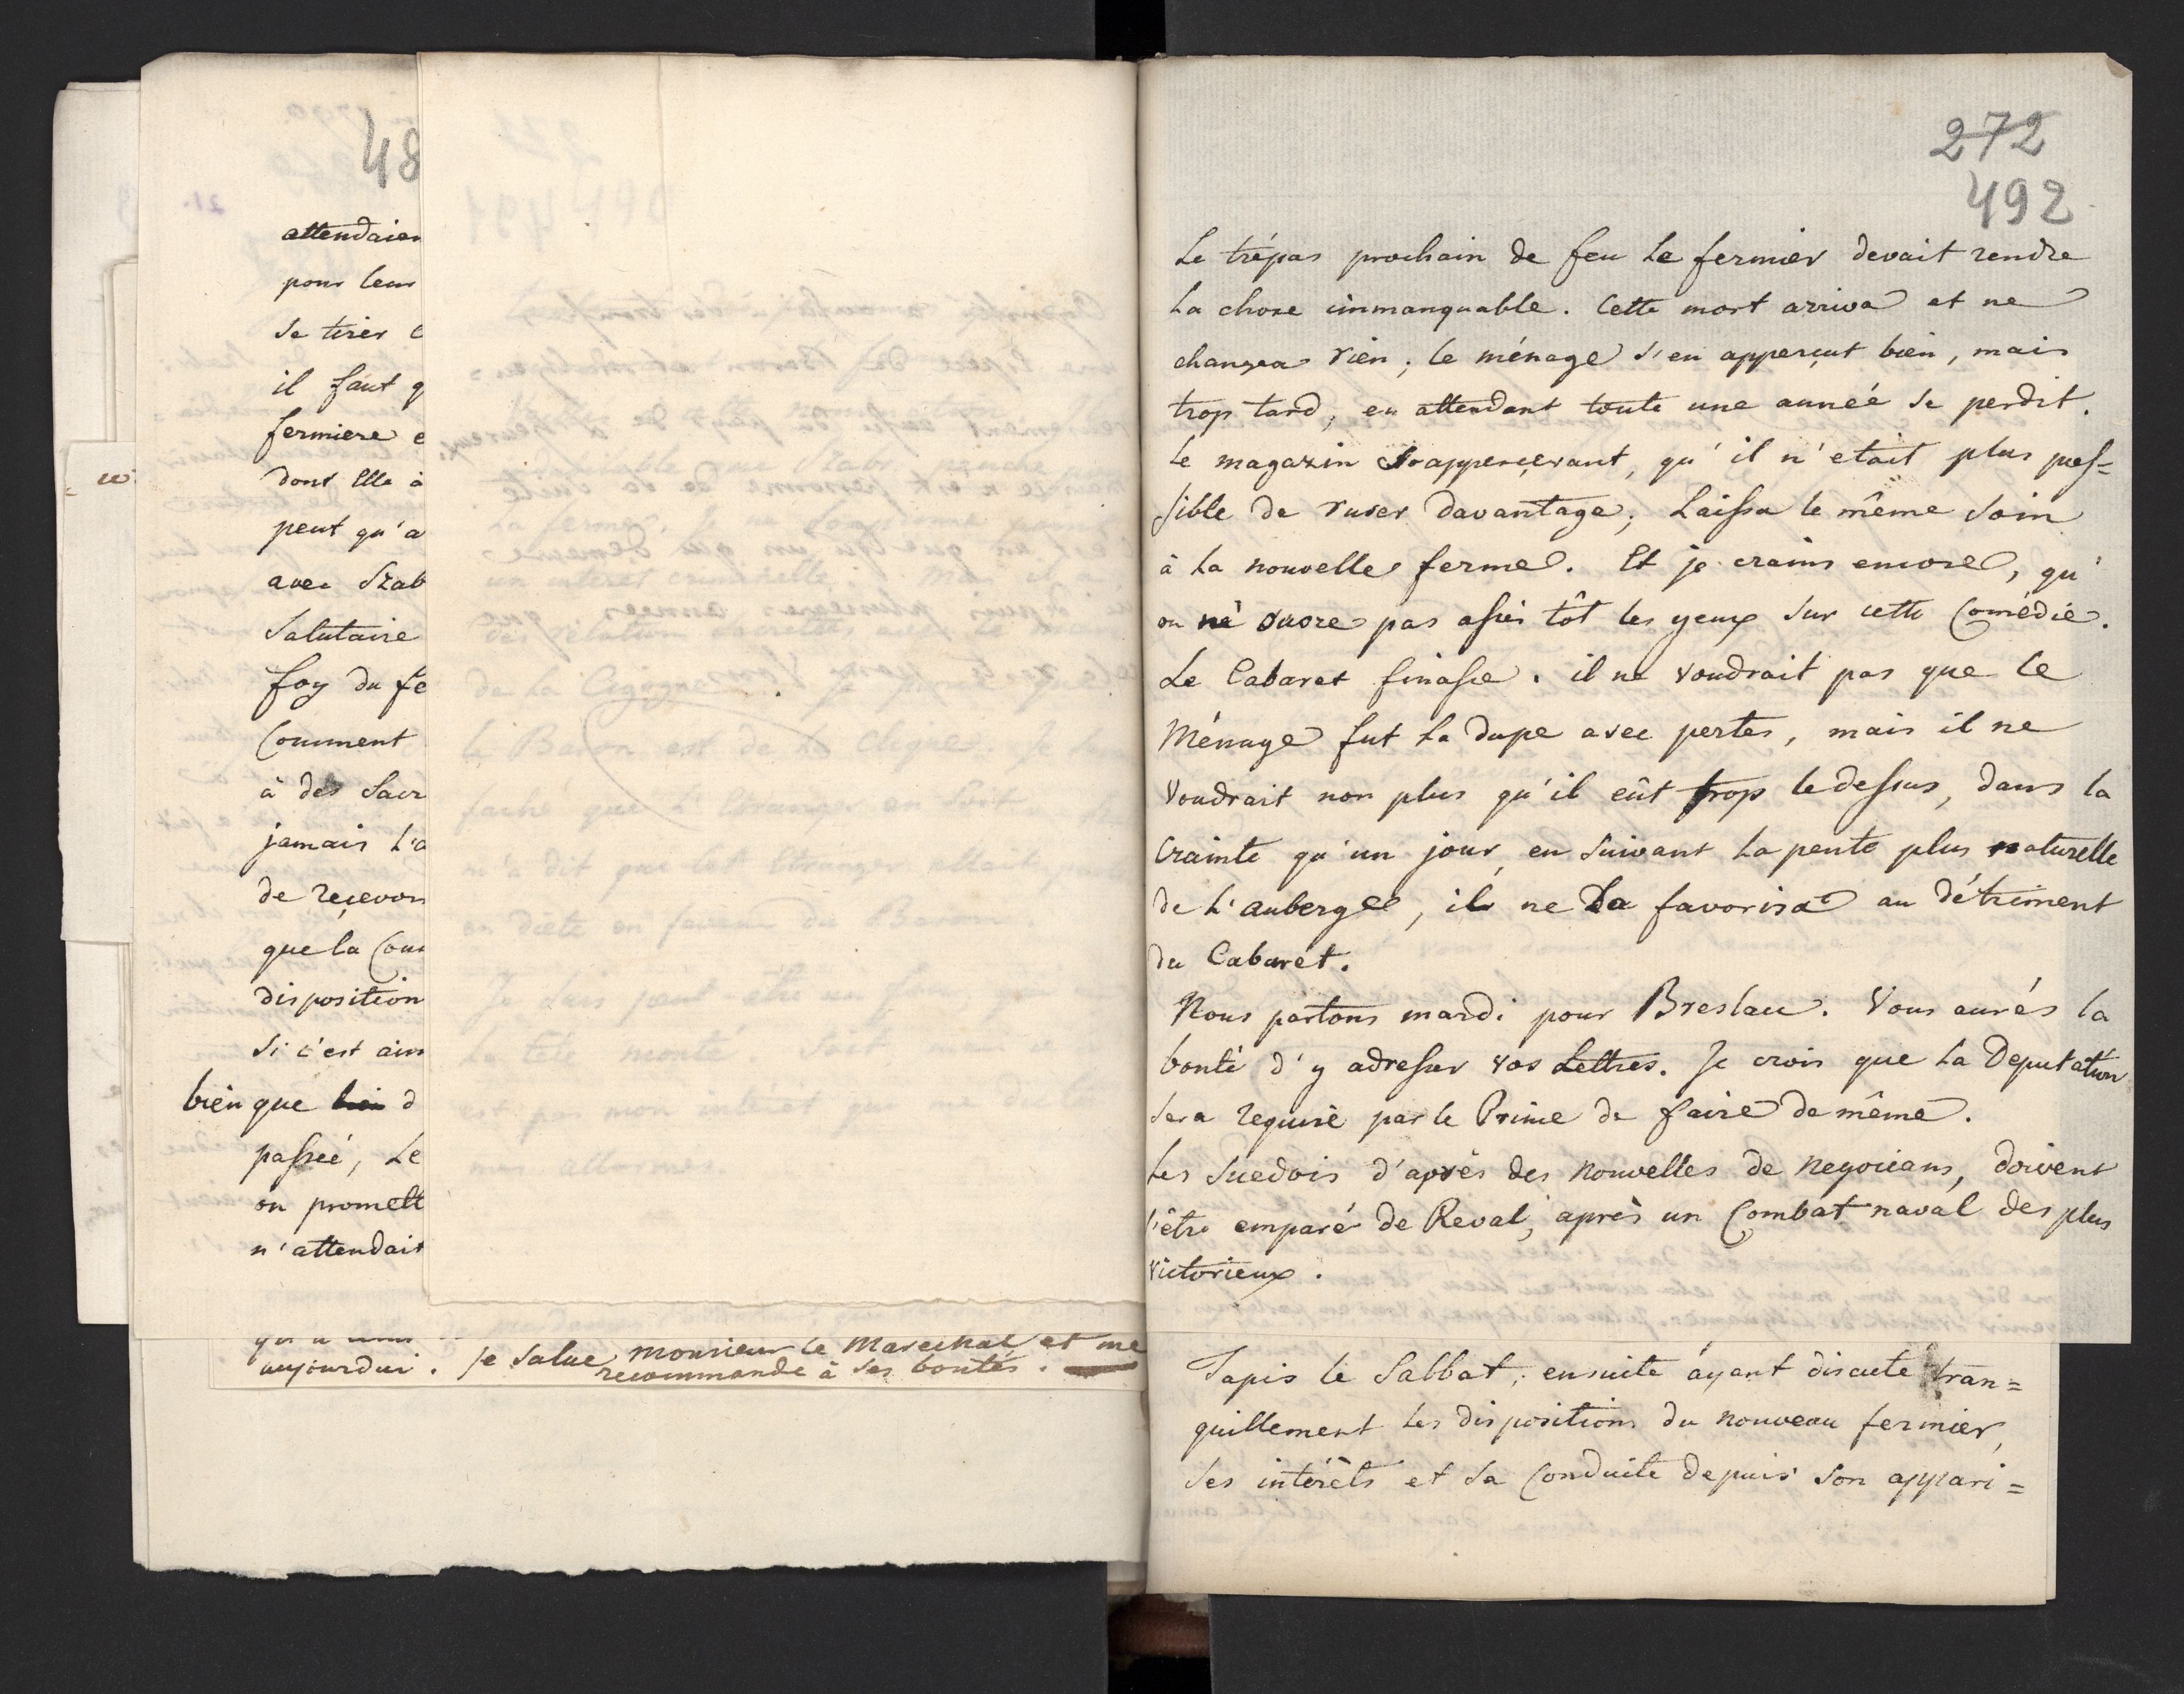 48
attendaien
pour leur
se tirer
il faut q
fermiere e
dont Elle à
peut qu'a
avec Szab
Salutaire
foy du fe
Comment
à des Sacr
jamais l'a
de reçevoir
que la Cour
disposition
Si c'est ain
bien que bien d
passée, Le
on promett
n'attendait
de La Cigogne
le Baron est de la clique. Je
faché que L'étranger en soit
m'a dit que cet étranger allait
en diète en faveur du Baron.
Je suis peut-être un
La tête monté. Soit, mais ce
est pas mon intérêt qui me dicte
mes allarmes.
aujourdui. Je Salue monsieur le Marechal et me
recommande à ses bontés.
272
492
Le trépas prochain de feu Le fermier devait rendre
La chose immanquable. Cette mort arriva et ne
changea rien; le ménage s'en apperçut bien, mais
trop tard; en attendant toute une année se perdit.
Le magazin s'apperçevant, qu'il n'etait plus pos=
sible de ruser davantage, Laissa le même soin
à La nouvelle ferme. Et je crains encore, qu'
on nè ouvre pas assés tôt les yeux sur cette Comédie.
Le Cabaret finasse. il ne voudrait pas que le
Ménage fut La dupe avec pertes, mais il ne
Voudrait non plus qu'il eût trop le dessus, dans la
Crainte qu'un jour, en suivant La pente plus naturelle
de L'auberge, il ne La favorisa au détriment
du Cabaret.
Nous partons mardi pour Breslau. Vous aurés la
bonté d'y adresser vos Lettres. Je crois que La Deputation
Sera requise par le Prince de faire de même.
Les Suedois d'après des Nouvelles de Negocians, doivent
s'être emparé de Reval, après un Combat naval des plus
Victorieux.
Tapis le Sabbat; ensuite ayant discuté tran=
quillement Les dispositions du nouveau fermier,
Ses intérêts et Sa Conduite depuis Son appari=